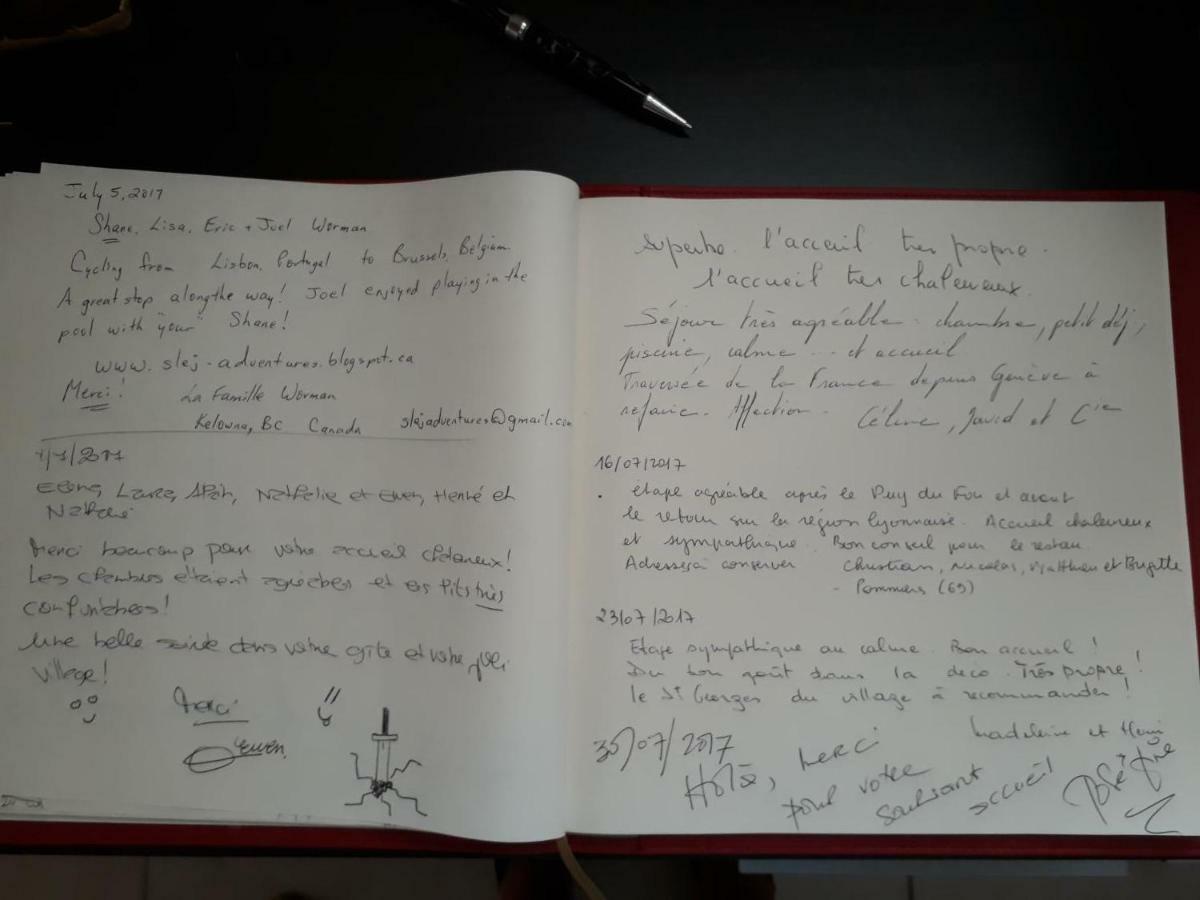 July 5, 2017
Shane, Lisa, Eric + Joel Worman
Cycling from Lisbon, Portugal to Brussels, Belgium.
A great stop along the way! Joel enjoyed playing in the
pool with "your" Shane!
www.slej-adventures.blogspot.ca
Merci! La Famille Worman
Kelowna, BC Canada slejadventures@gmail.com
/7/2017
Laure, Nathalie et Ewen, Hervé et
Nathalie
Merci beaucoup pour votre accueil chaleureux!
Les chambres étaient agréables et les lits très
confortables!
Une belle soirée dans votre gite et votre joli
village!
Merci
Ewen
Superbe. l'acceuil tres propre.
l'accueil tres chaleureux.
Séjour très agréable - chambre, petit déj,
piscine, calme ... et accueil
Traversée de la France depuis Genève à
refaire. Affection. Céline, David et Cie
16/07/2017
. étape agréable après le Puy du Fou et avant
le retour sur la région lyonnaise. Accueil chaleureux
et sympathique. Bon conseil pour le restau.
Adresse à conserver Christian, Nicolas, Matthieu et Brigitte
- Pommiers (69)
23/07/2017
Etape sympathique au calme. Bon accueil!
Du bon goût dans la deco. Très propre!
le St Georges du village à recommander!
Madeleine et Henri
30/07/2017
Hola, Merci
pour votre
accueil